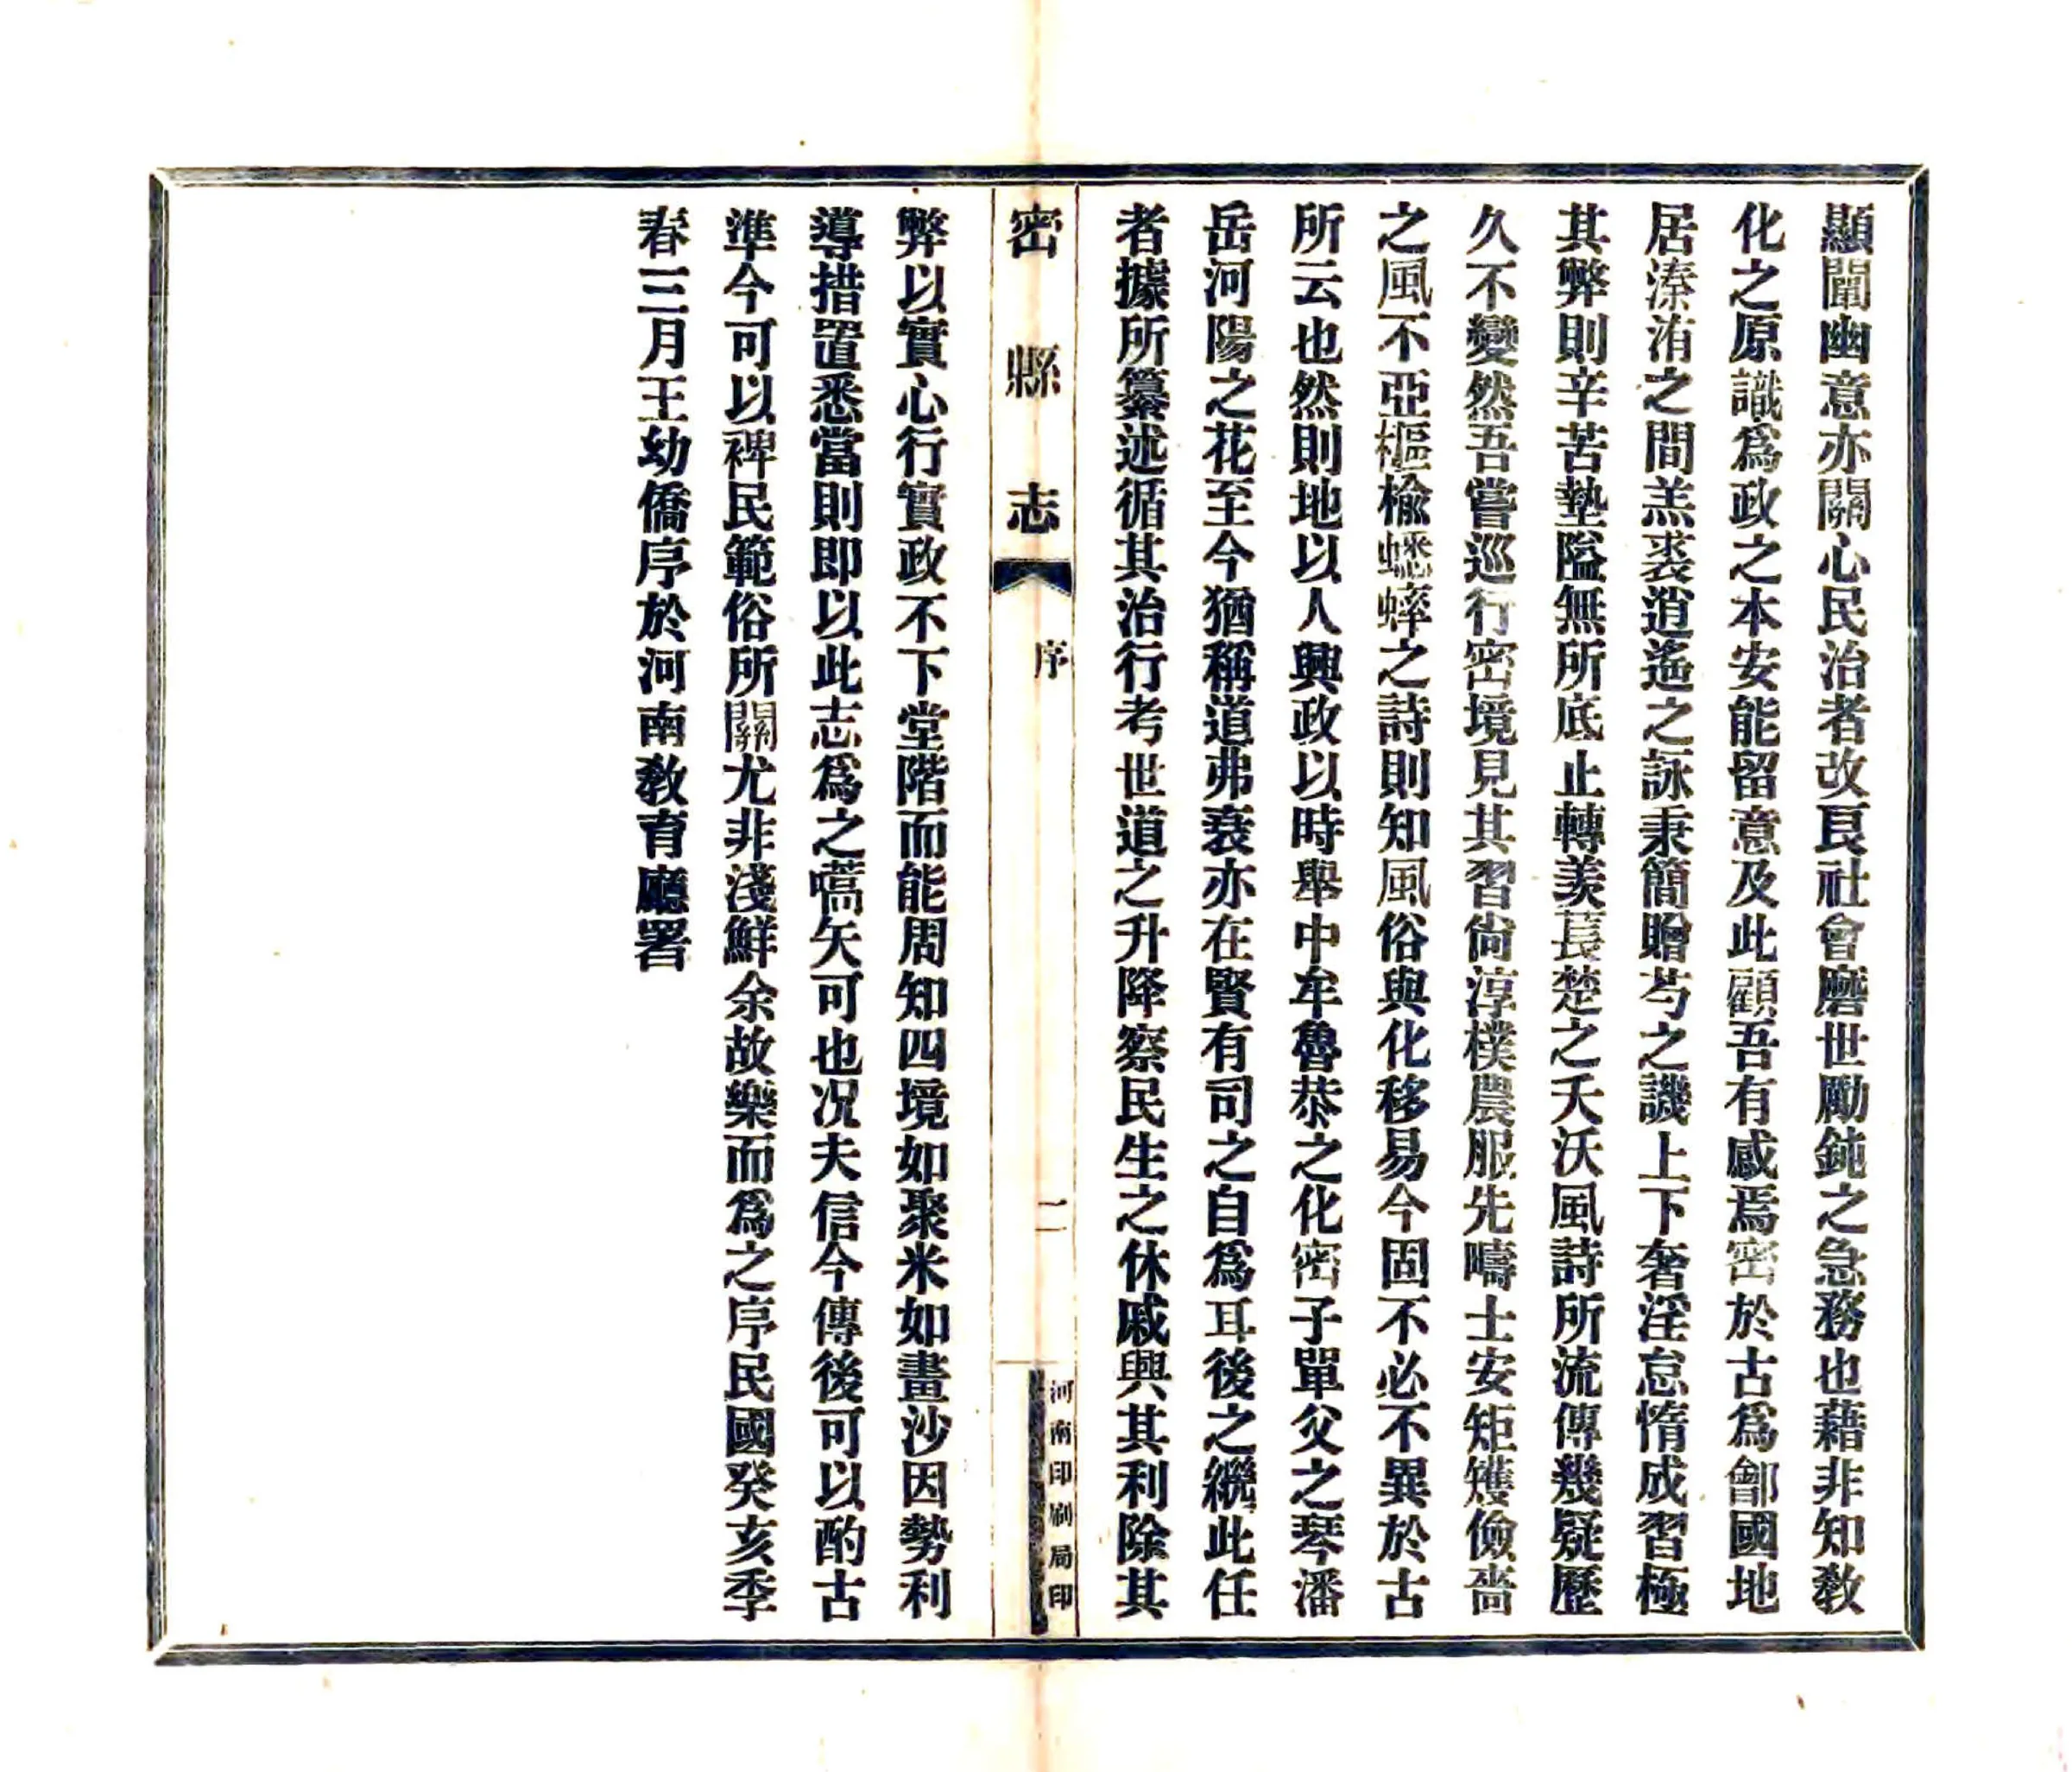 顯闡幽意亦關心民治者改良社會磨世勵鈍之急務也藉非知敎
化之原識爲政之本安能留意及此顧吾有感焉密於古爲鄶國地
居溱洧之間羔裘逍遙之詠秉簡贈芍之譏上下奢淫怠惰成習極
其弊則辛苦墊隘無所底止轉羡萇楚之夭沃風詩所流傳幾疑歷
久不變然吾嘗巡行密境見其習尙淳樸農服先疇士安矩矱儉嗇
之風不亞樞楡蟋蟀之詩則知風俗與化移易今固不必不異於古
所云也然則地以人興政以時舉中牟魯恭之化密子單父之琴潘
岳河陽之花至今猶稱道弗衰亦在賢有司之自爲耳後之繼此任
者據所纂述循其治行考世道之升降察民生之休戚興其利除其
密縣志
序
二
河南印刷局印
弊以實心行實政不下堂階而能周知四境如聚米如畫沙因勢利
導措置悉當則即以此志爲之嚆矢可也况夫信今傳後可以酌古
準今可以裨民範俗所關尤非淺鮮余故樂而爲之序民國癸亥季
春三月王幼僑序於河南敎育廳署